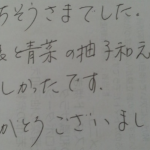 ちそうさまでした.
と青菜の柚子和え
しかったです.
がとうございまし